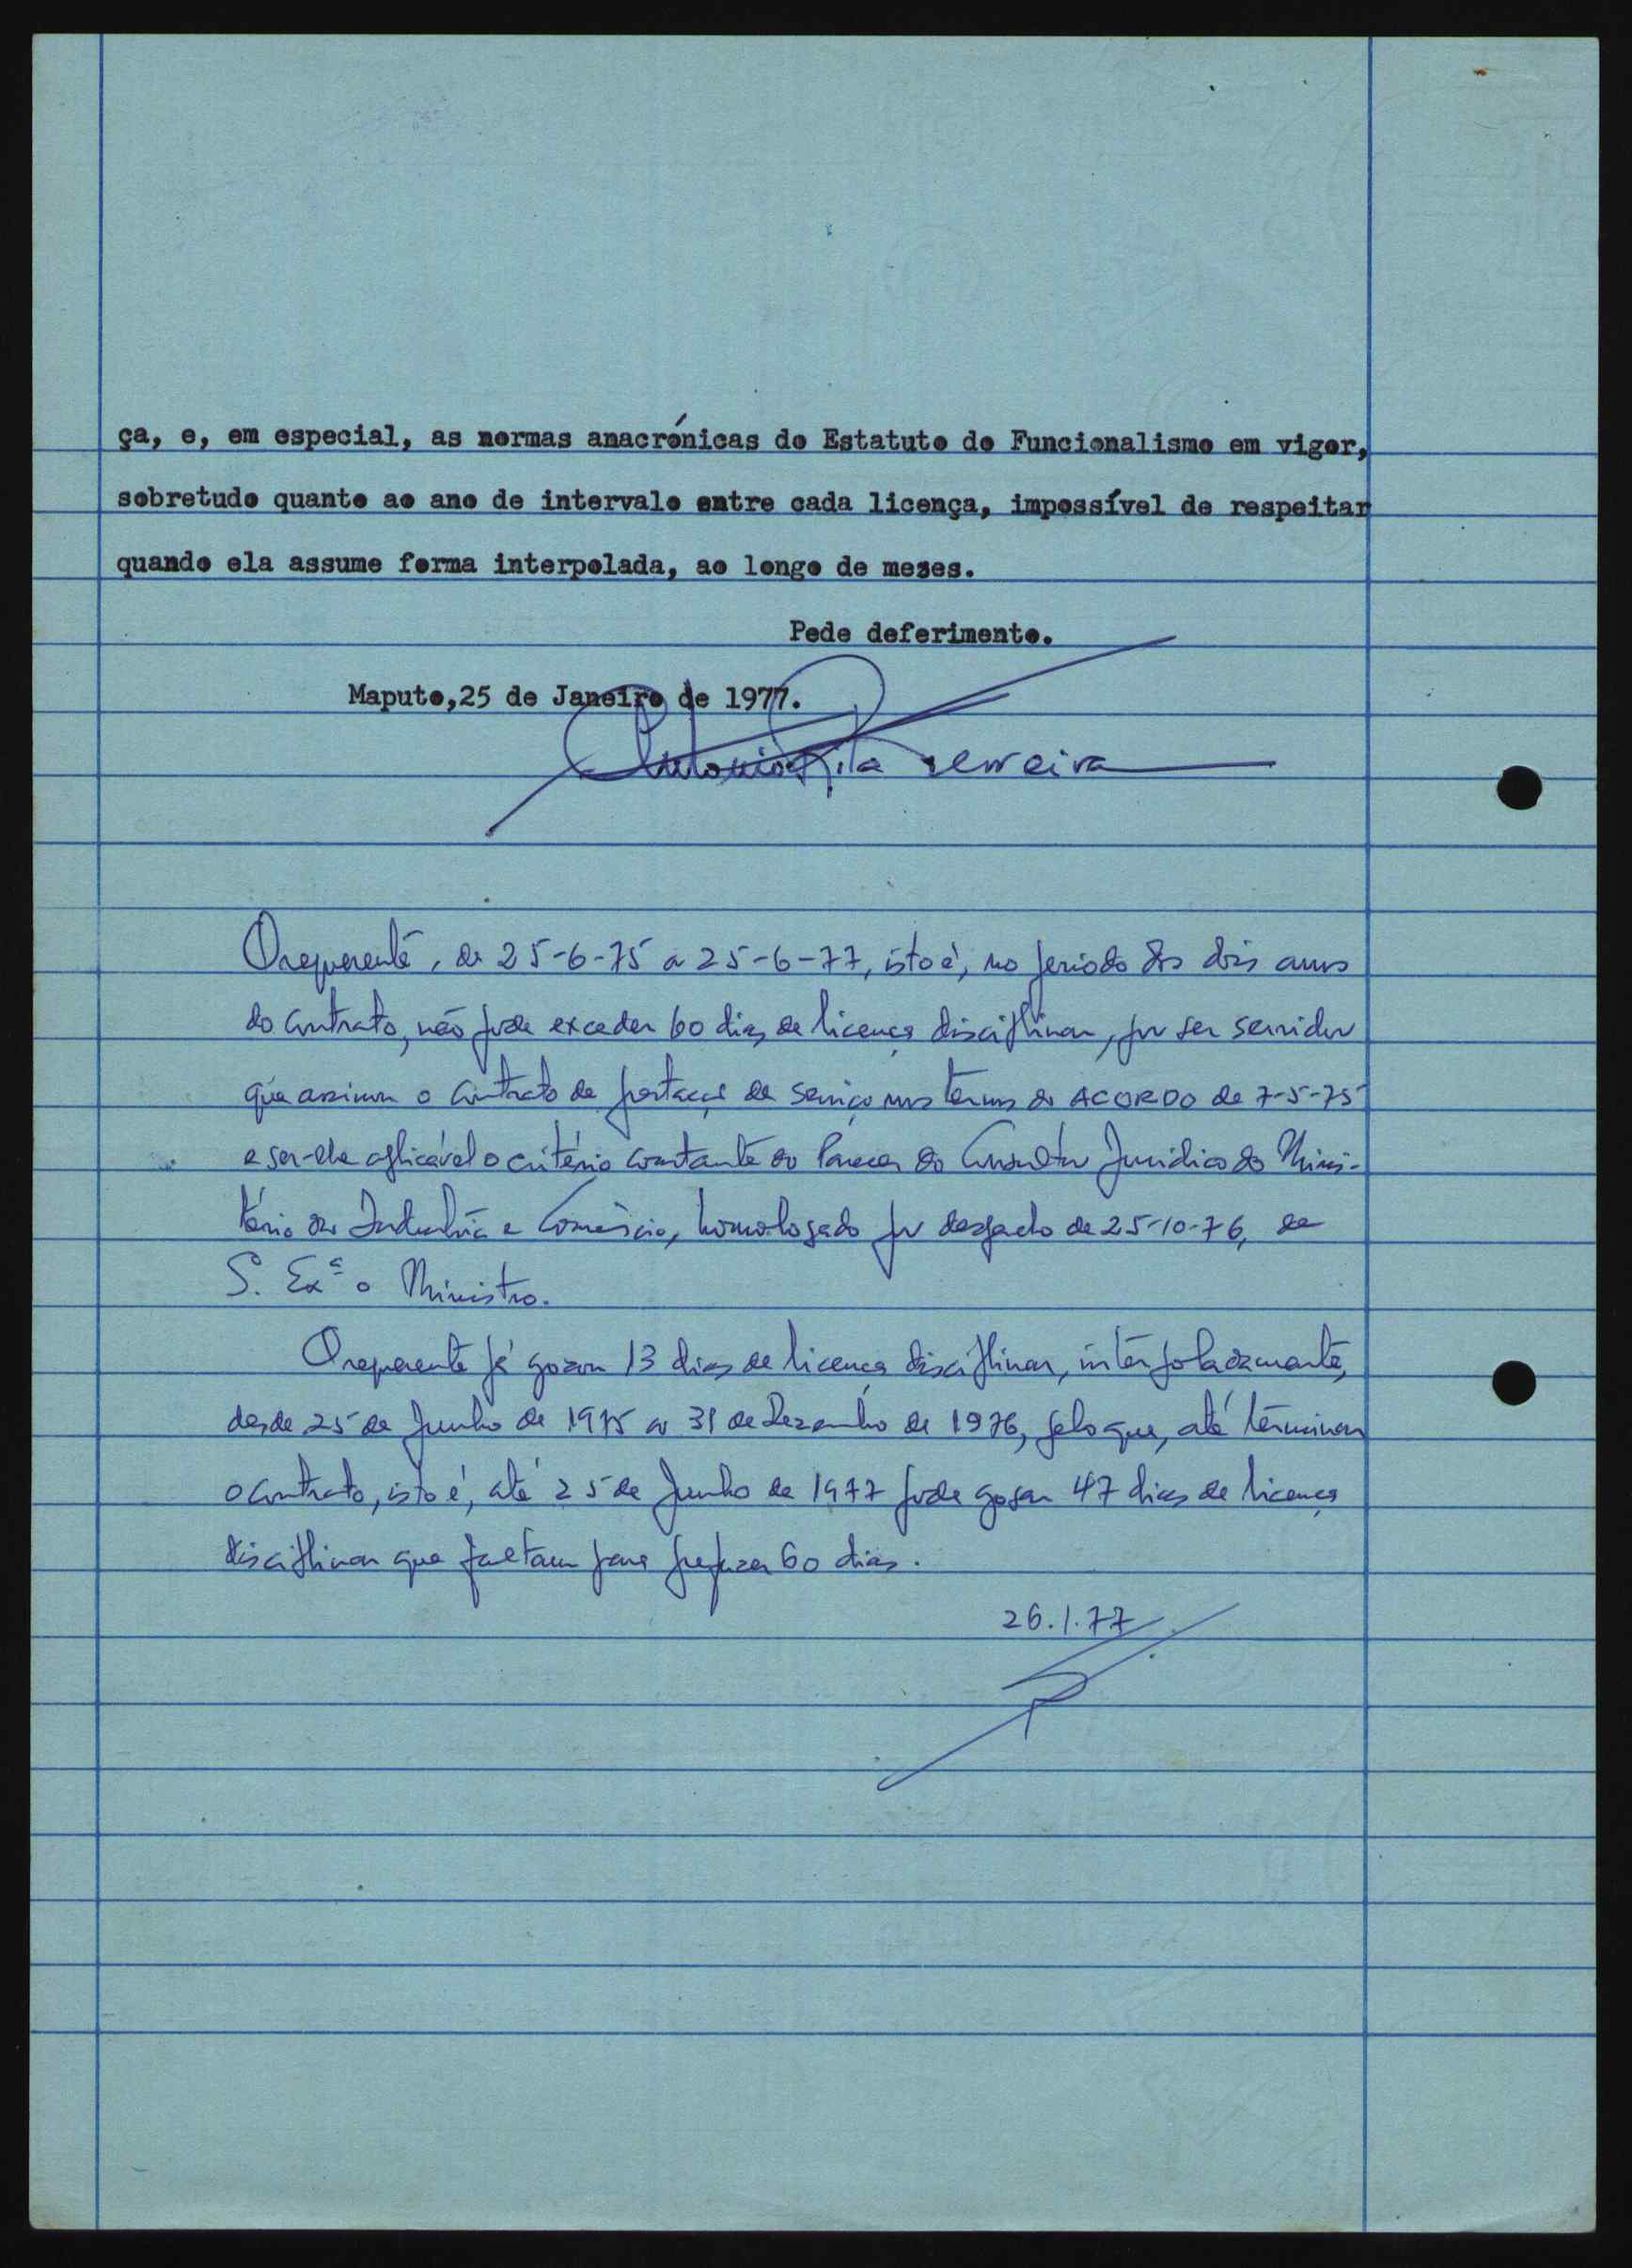 ça, e, em especial, as normas anacrónicas do Estatuto do Funcionalismo em vigor,
sobretudo quanto ao ano de intervalo entre cada licença, impossível de respeitar
quando ela assume forma interpolada, ao longo de meses.
Pede deferimento.
Maputo,25 de Janeiro de 1977.
António Rita Ferreira
O requerente, de 25-6-75 a 25-6-77, isto é, no periodo dos dois anos
do contrato, não pode exceder 60 dias de licença disciplinar, por ser servidor
que assinou o contrato de prestação de serviço nos termos do ACORDO de 7-5-75
e ser-lhe aplicável o critério constante do Parecer do Consultor Jurídico do Minis-
tério da Indústria e Comércio, homologado por despacho de 25-10-76, de
S. Exª o Ministro.
O requerente já gozou 13 dias de licença disciplinar, interpoladamente,
desde 25 de Junho de 1975 a 31 de Dezembro de 1976, pelo que, até terminar
o contrato, isto é, até 25 de Junho de 1977 pode gozar 47 dias de licença
disciplinar que faltam para prefazer 60 dias.
26.1.77